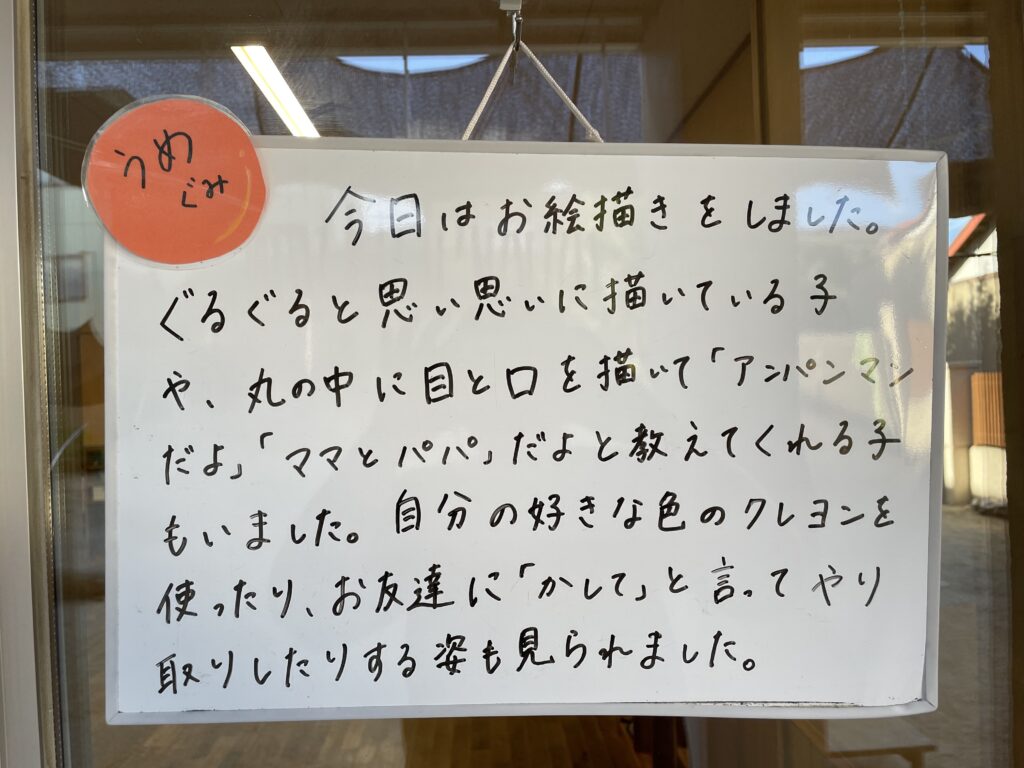 うめ
ぐみ
今日はお絵描きをしました。
ぐるぐると思い思いに描いている子
や、丸の中に目と口を描いて「アンパンマン
だよ」「ママとパパ」だよと教えてくれる子
もいました。自分の好きな色のクレヨンを
使ったり、お友達に「かして」と言ってやり
取りしたりする姿も見られました。